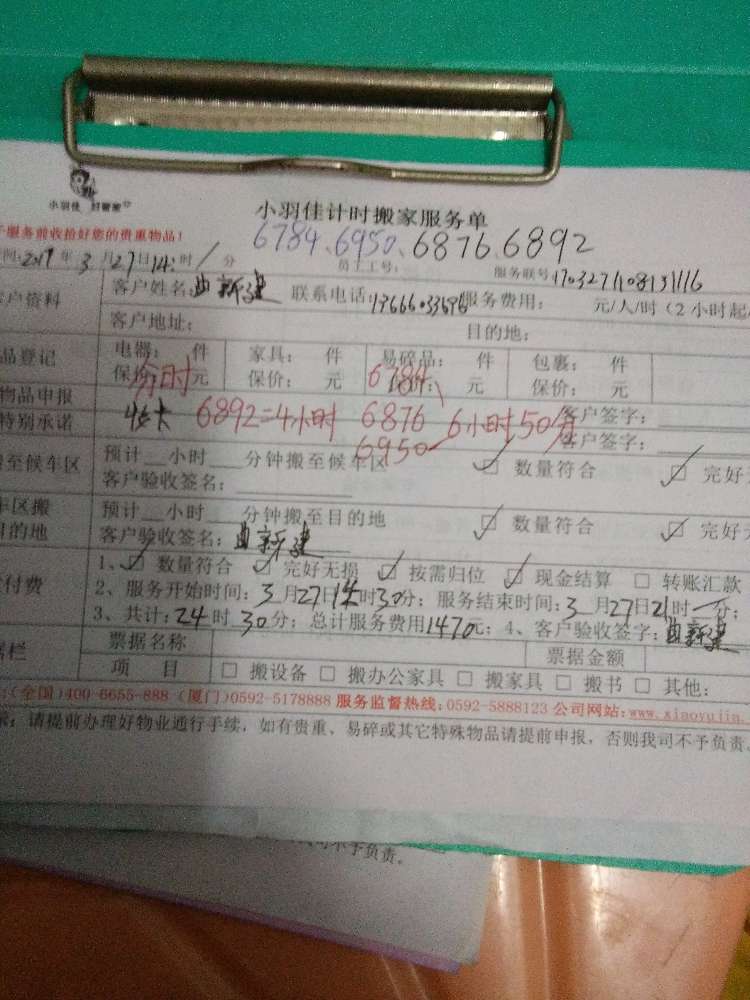 小羽佳 好管家
小羽佳计时搬家服务单
服务前收拾好您的贵重物品!
6784、6950、6876、6892
间: 2017年3月27日14时/分 员工工号: 服务联号
户资料 客户姓名: 曲新建 联系电话: 服务费用: 元/人/时(2小时起
客户地址: 目的地:
品登记 电器: 件 家具: 件 易碎品: 件 包裹: 件
保价: 元 保价: 元 保价: 元 保价: 元
分时 6784
物品申报 客户签字:
特别承诺 6892=4小时 6876 6小时50分 客户签字:
6950
至候车区 预计 小时 分钟搬至候车区 ☑ 数量符合 ☑ 完好
客户验收签名:
车区搬 预计 小时 分钟搬至目的地 ☑ 数量符合 ☑ 完好
目的地 客户验收签名: 曲新建
付费 1、☑ 数量符合 ☑ 完好无损 ☑ 按需归位 ☑ 现金结算 □ 转账汇款
2、服务开始时间: 3月27日14时30分; 服务结束时间: 3月27日21时 分;
3、共计: 24时30分; 总计服务费用1470元; 4、客户验收签字: 曲新建
据栏 票据名称 票据金额
项 目 □ 搬设备 □ 搬办公家具 □ 搬家具 □ 搬书 □ 其他:
(全国)400-6655-888 (厦门)0592-5178888 服务监督热线: 0592-5888123 公司网站: www.xiaoyujia.
: 请提前办理好物业通行手续, 如有贵重、易碎或其它特殊物品请提前申报, 否则我司不予负责
司不予负责。